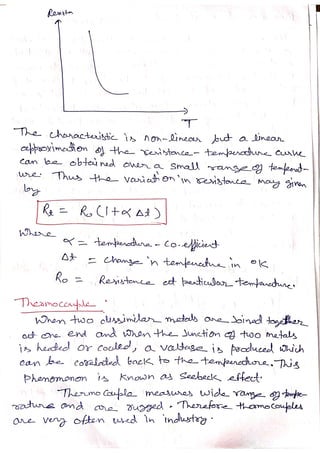 Resistan
T
The characteristic is non-linear but a linear
approximation of the resistance-temperature curve
can be obtained over a small range of temperat-
ure. Thus the variation in resistance may given
by
Rt = Ro (1+α Δt)
Where
α = temperature-Co-efficient
Δt = change in temperature in °K
Ro = Resistance at particular temperature.
Thermocouple.
When two dissimilar metals are Joined together
at one end and when the Junction of two metals
is heated or cooled, a voltage is produced which
can be corelated back to the temperature. This
phenomenon is known as Seebeck effect.
Thermo Couple measures wide range of tempe-
rature and are rugged. Therefore thermocouples
are very often used in industry.